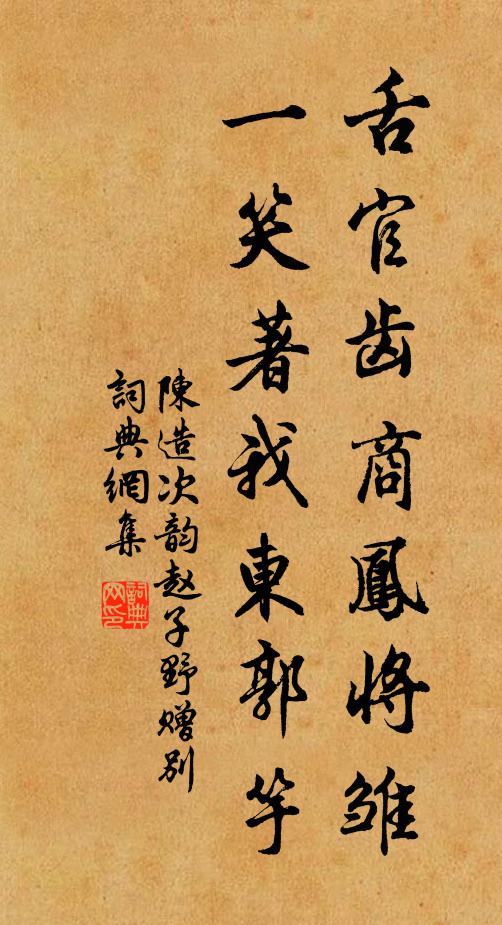 舌官齿商鳳將雛
一笑著我東郭竽
陳造次韵赵子野赠别
詞典網集
詞典网印